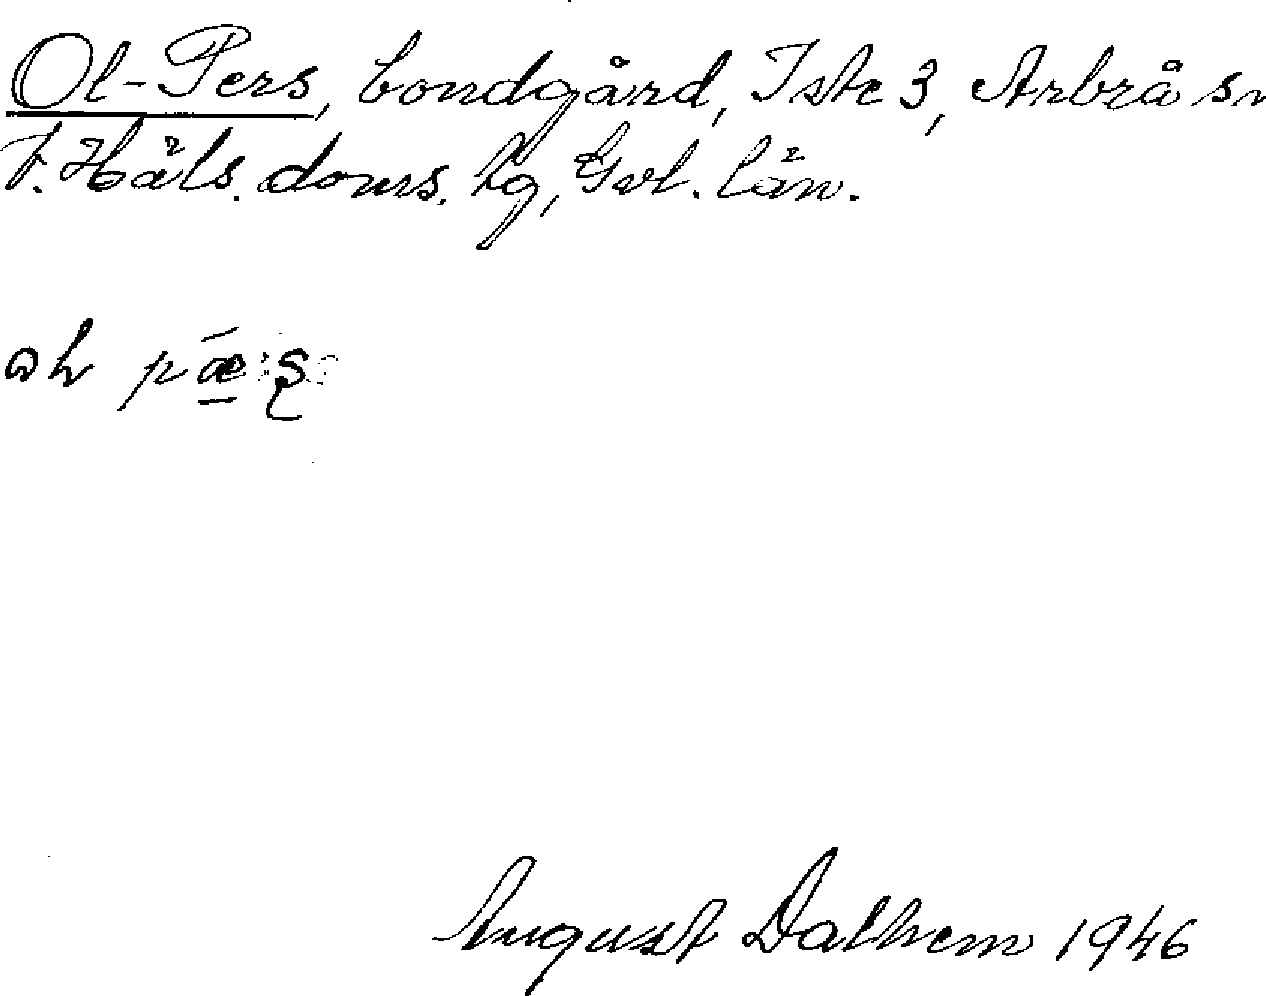 Ol-Pers, bondgård, Iste 3, Arbrå sn
V. Häls. doms. hg, Gvl. län.
August Dalhem 1946